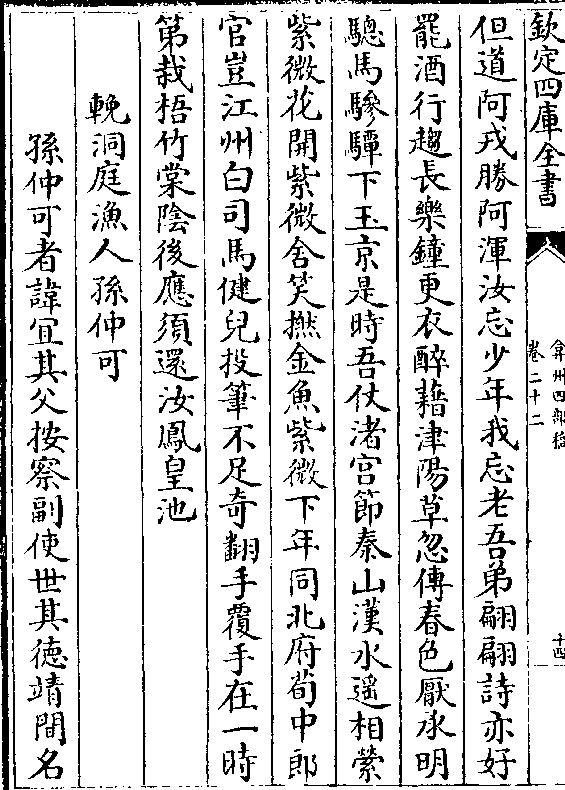 欽定四庫全書
弇州四部稿
卷二十二
十四
但道阿戎勝阿渾汝忘少年我忘老吾弟翩翩詩亦好
罷酒行趨長樂鐘更衣醉藉津陽草忽傳春色厭承明
驄馬驂驔下玉京是時吾仗渚宮節秦山漢水遥相縈
紫微花開紫微舍笑撚金魚紫微下年同北府荀中郎
官豈江州白司馬健兒投筆不足奇翻手覆手在一時
第栽梧竹棠陰後應須還汝鳳皇池
輓洞庭漁人孫仲可
孫仲可者諱宜其父按察副使世其徳靖間名